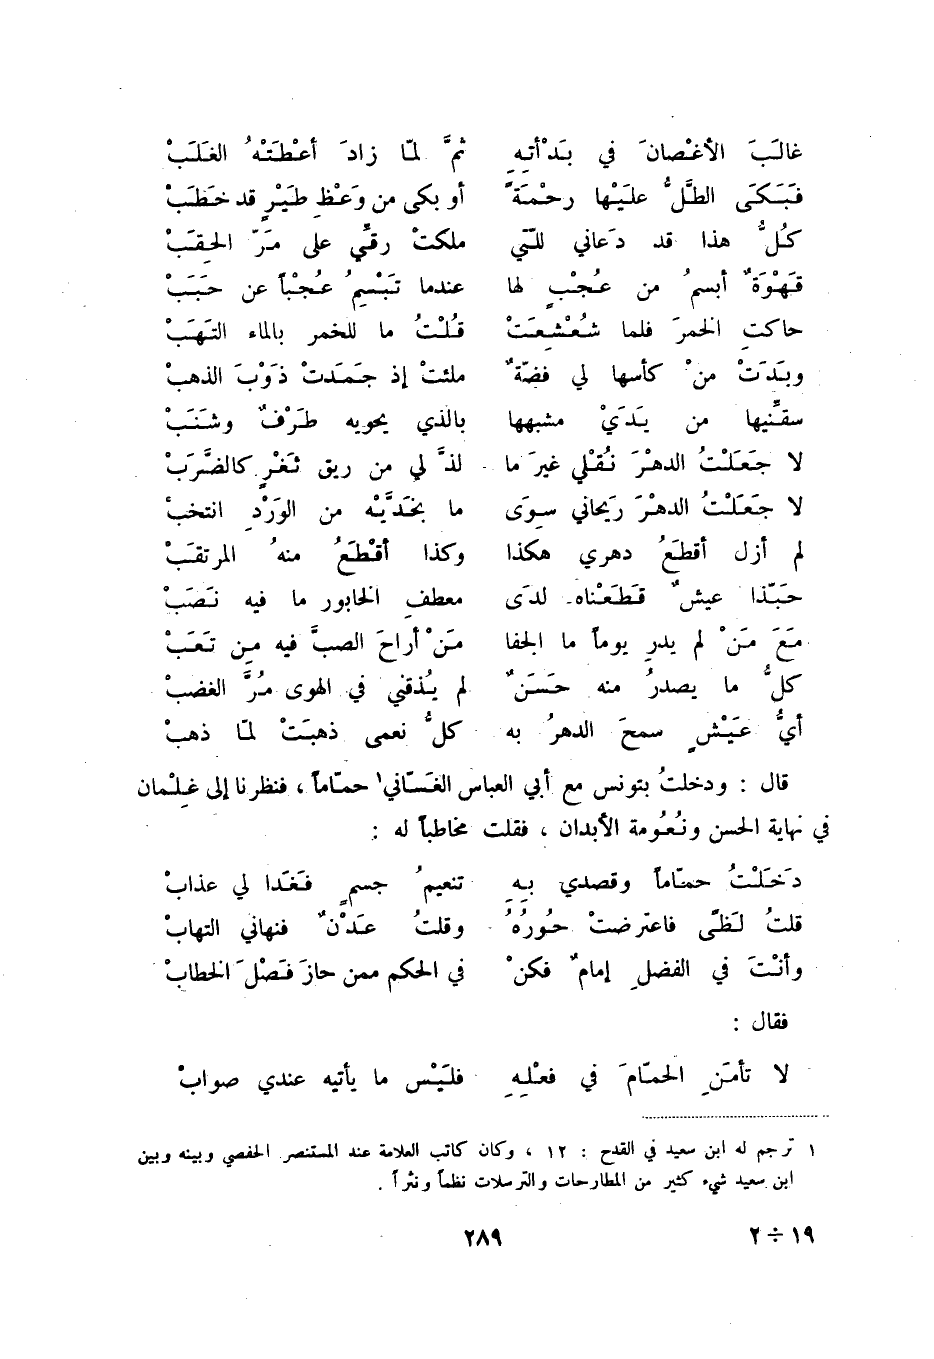 غالَبَ الأغْصانَ في بَدْأتِهِ ثمَّ لمّا زادَ أعْطَتْهُ الغَلَبْ
فَبَكَى الطَّلُّ علَيْها رحْمَةً أو بكى من وَعْظِ طَيْرٍ قد خَطَبْ
كُلُّ هذا قد دَعاني للّتي ملكتْ رقّي على مَرّ الحِقَبْ
قَهْوَةٌ أبسمُ من عُجْبٍ لها عندما تَبْسِمُ عُجْباً عن حَبَبْ
حاكتِ الخمرَ فلما شُعْشِعَتْ قُلْتُ ما للخمر بالماء التهَبْ
وبَدَتْ منْ كأسها لي فضّةٌ ملئتْ إذ جَمَدَتْ ذَوْبَ الذهبْ
سقّنيها من يَدَيْ مشبهها بالذي يحويه طَرْفٌ وشَنَبْ
لا جَعَلْتُ الدهْرَ نُقْلي غيرَ ما لذَّ لي من ريق ثَغْرٍ كالضَّرَبْ
لا جَعَلْتُ الدهْرَ ريحاني سِوَى ما بخَدَّيْه من الوَرْدِ انتخبْ
لم أزل أقطَعُ دهري هكذا وكذا أقْطَعُ منهُ المرتقَبْ
حَبّذا عيشٌ قَطَعْناه لدَى معطفِ الخابور ما فيه نَصَبْ
مَعَ مَنْ لم يدرِ يوماً ما الجفا مَنْ أراحَ الصبَّ فيه مِن تعَبْ
كلُّ ما يصدرُ منه حَسَنٌ لم يُذقني في الهوى مُرَّ الغضبْ
أيُّ عيَْشٍ سمحَ الدهرُ به كلُّ نعمى ذهبَتْ لمّا ذهبْ
قال : ودخلتُ بتونس مع أبي العباس الغَسّاني١ حمّاماً ، فنظرنا إلى غلْمان
في نهاية الحسن ونُعُومة الأبدان ، فقلت مخاطباً له :
دَخَلْتُ حمّاماً وقصدي بِهِ تنعيمُ جسمٍ فَغَدا لي عذابْ
قلتُ لَظًى فاعترضتْ حُورُهُ وقلتُ عَدْنٌ فنهاني التهابْ
وأنْتَ في الفضلِ إمامٌ فكنْ في الحكم ممن حازَ فَصْلَ الخطابْ
فقال :
لا تأمَنِ الحمّامَ في فعْلِهِ فليَْس ما يأتيه عندي صوابْ
١ ترجم له ابن سعيد في القدح : ١٢ ، وكان كاتب العلامة عند المستنصر الحفصي وبينه وبين
ابن سعيد شيء كثير من المطارحات والترسلات نظماً ونثراً .
١٩ ÷ ٢ ٢٨٩